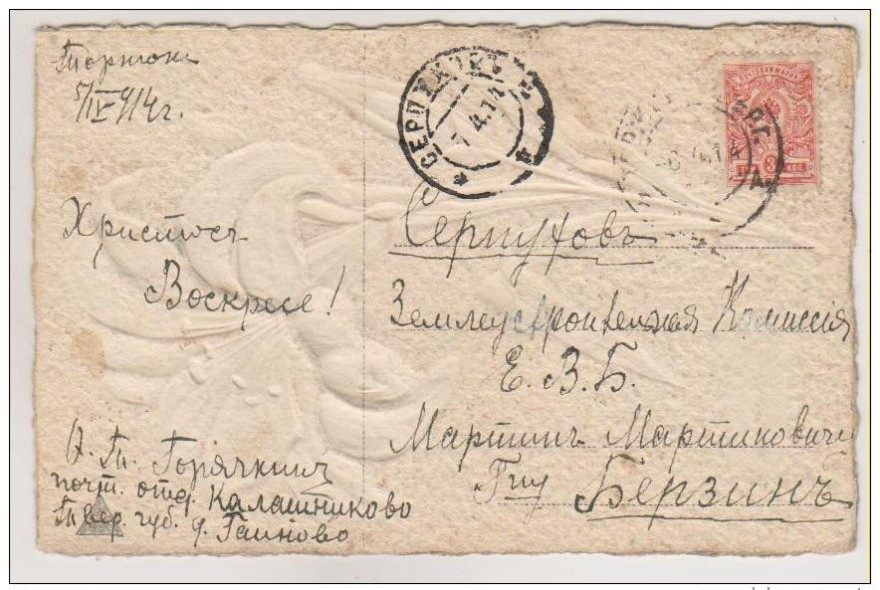 Торжокъ
5/IV 914 г.
Христосъ
Воскресе!
П. Горячкинъ
почт. отд. Калашниково
Твер. губ. д.
СЕРПУХОВЪ
7.4.14
ПОЧТОВАЯ МАРКА
3 КОП.
Серпуховъ
Землеустроительная Коммиссія
Е. В. Б.
Мартинъ Мартиновичу
Гну Берзинъ